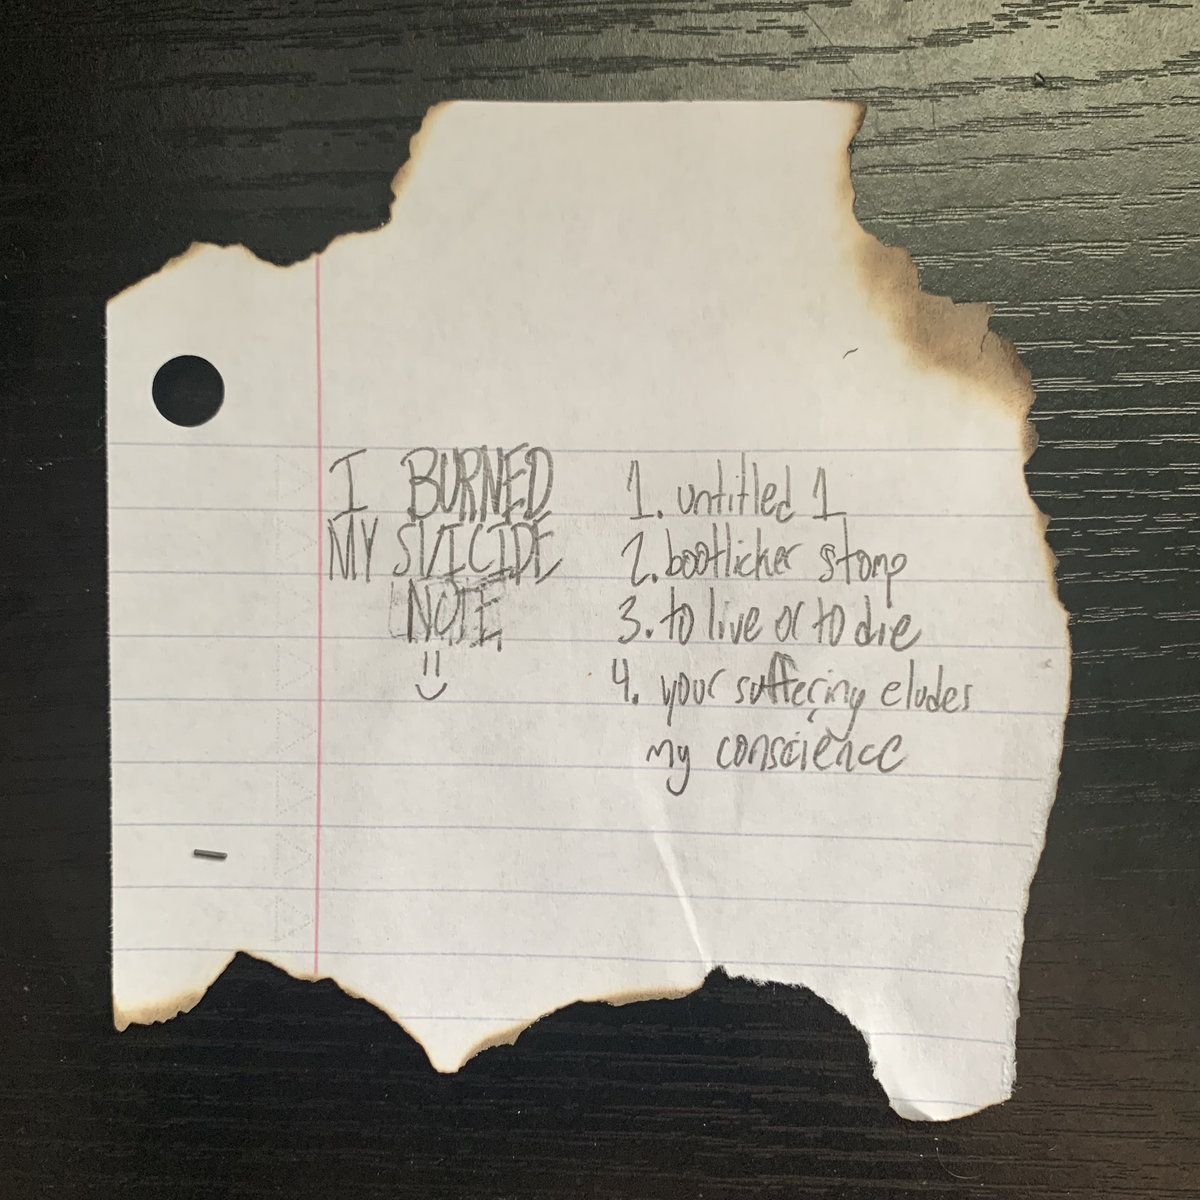 I BURNED
MY SUICIDE
NOTE
1. untitled 1
2. bootlicker stomp
3. to live or to die
4. your suffering eludes
my conscience